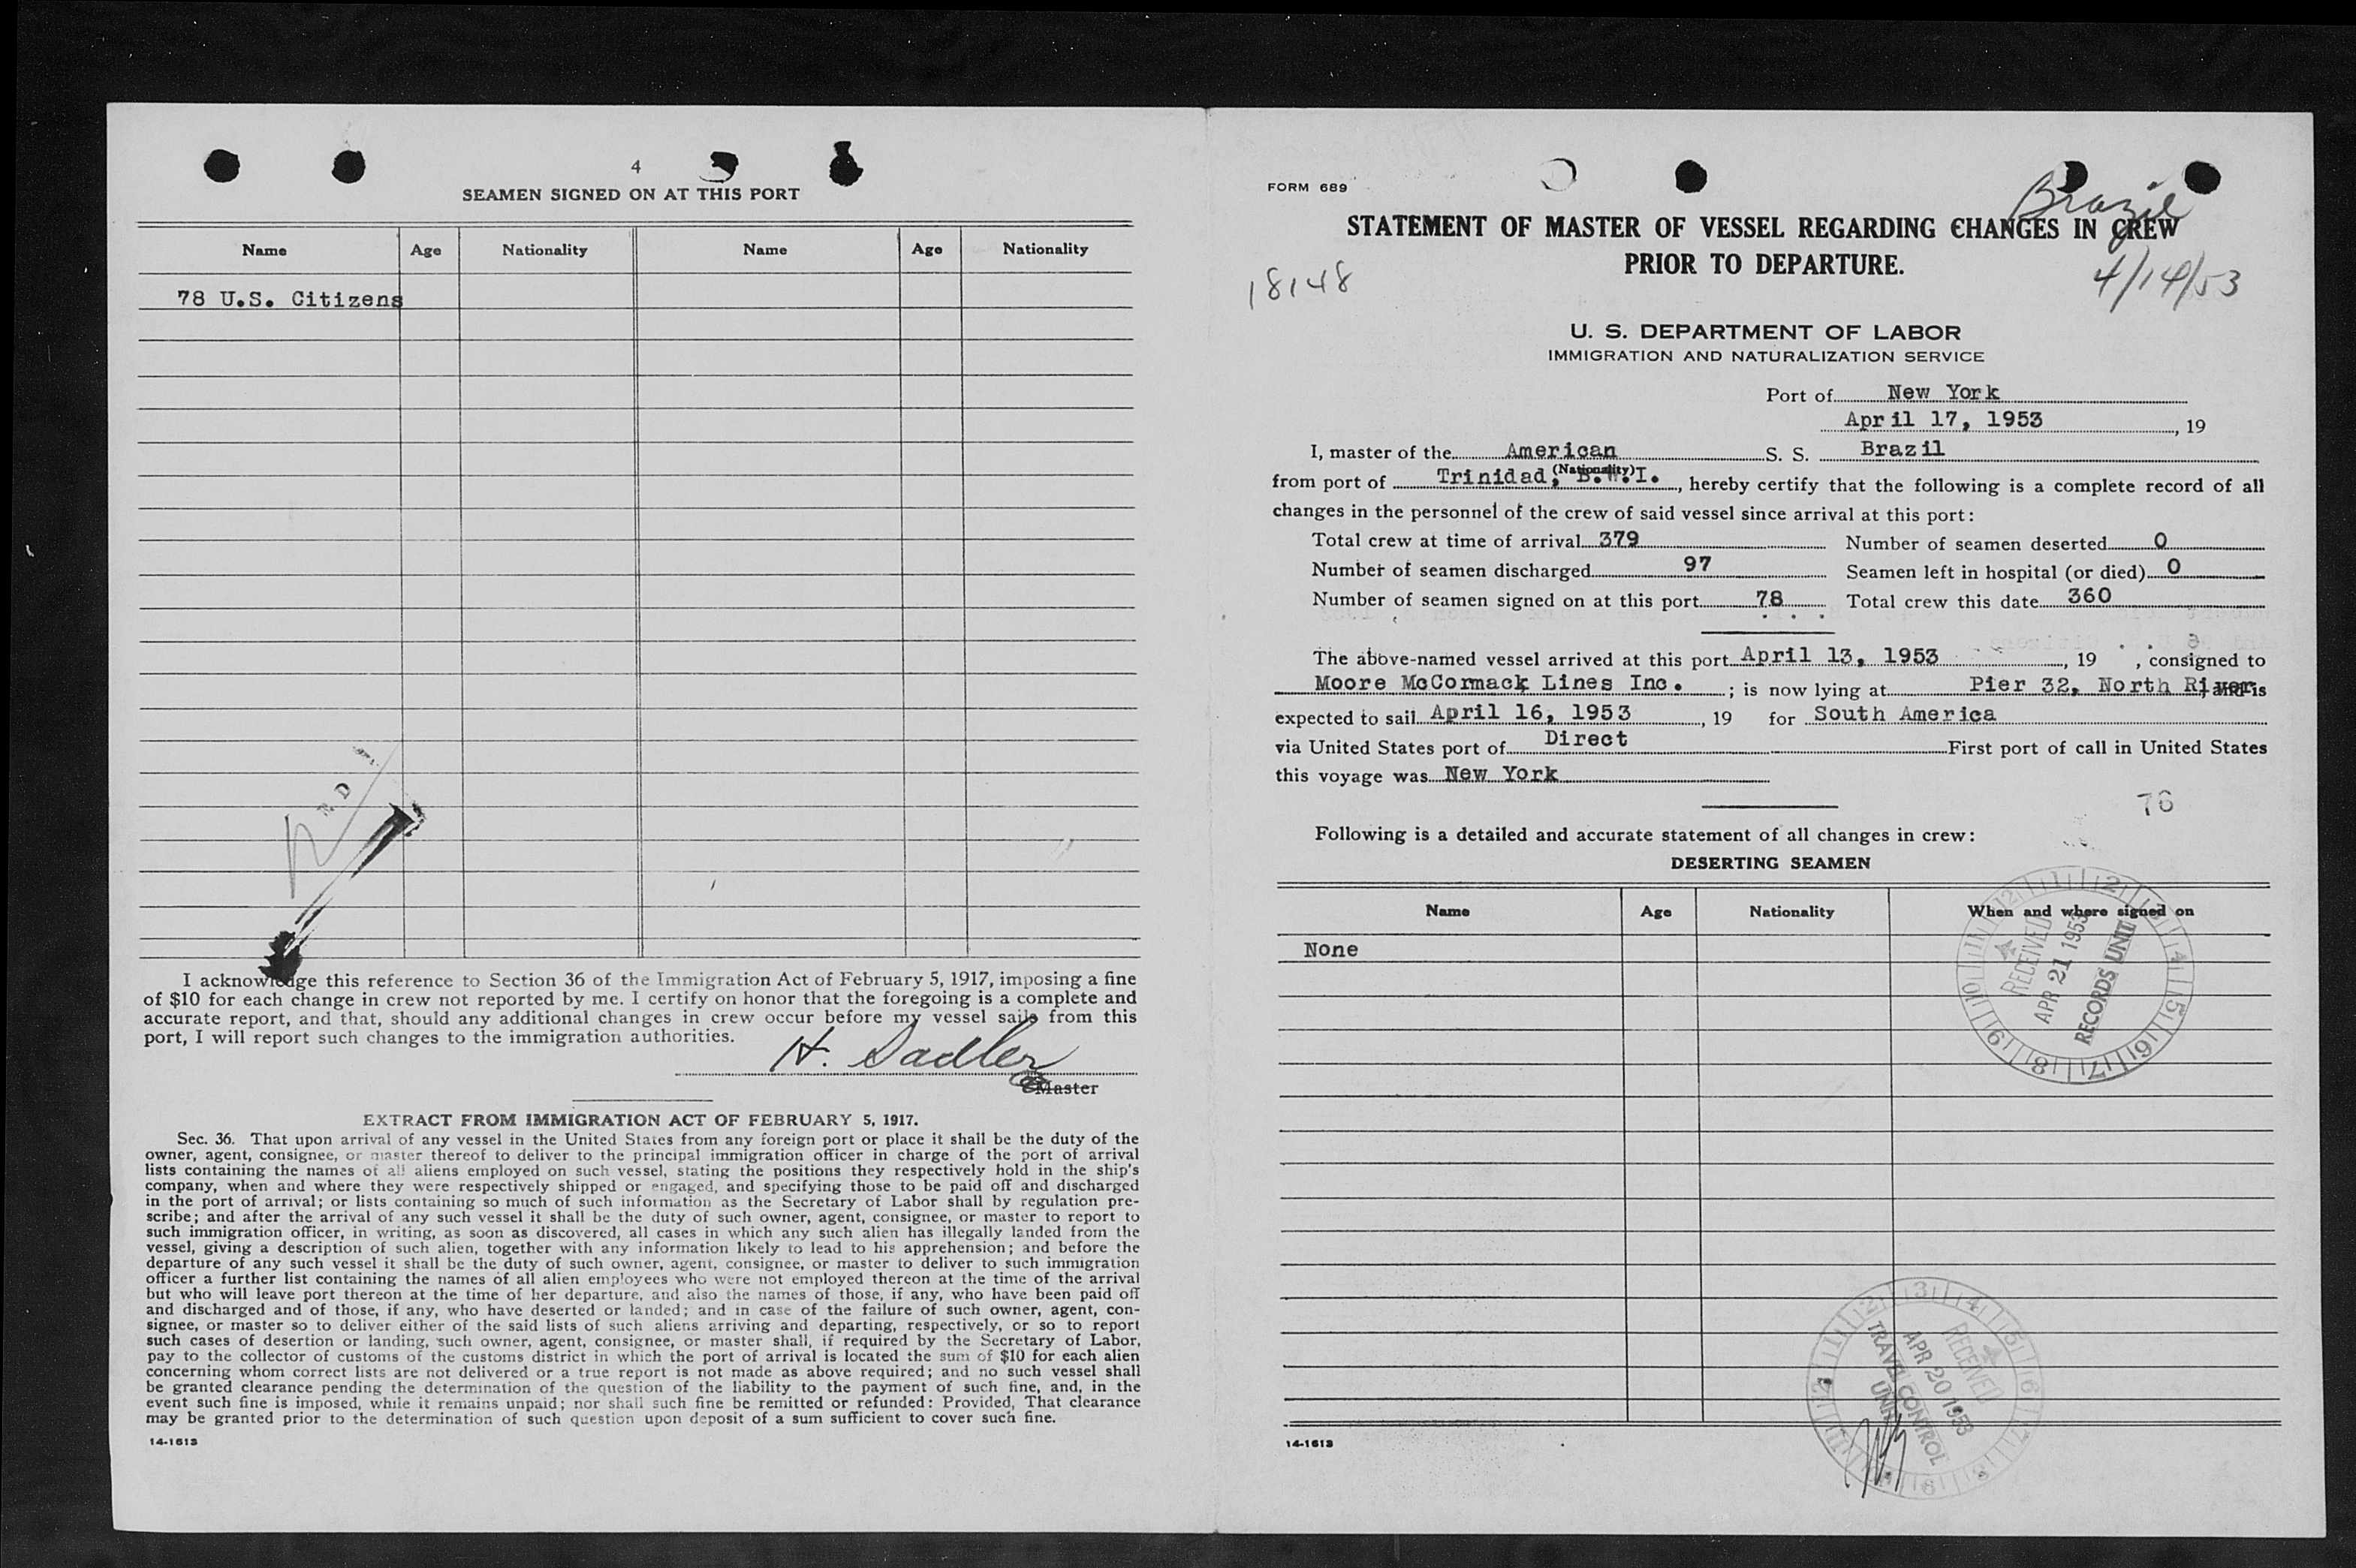 4
SEAMEN SIGNED ON AT THIS PORT
Name Age Nationality Name Age Nationality
78 U.S. Citizens
I acknowledge this reference to Section 36 of the Immigration Act of February 5, 1917, imposing a fine
of $10 for each change in crew not reported by me. I certify on honor that the foregoing is a complete and
accurate report, and that, should any additional changes in crew occur before my vessel sails from this
port, I will report such changes to the immigration authorities.
H. Sadler
Master
EXTRACT FROM IMMIGRATION ACT OF FEBRUARY 5, 1917.
Sec. 36. That upon arrival of any vessel in the United States from any foreign port or place it shall be the duty of the
owner, agent, consignee, or master thereof to deliver to the principal immigration officer in charge of the port of arrival
lists containing the names of all aliens employed on such vessel, stating the positions they respectively hold in the ship's
company, when and where they were respectively shipped or engaged, and specifying those to be paid off and discharged
in the port of arrival; or lists containing so much of such information as the Secretary of Labor shall by regulation pre-
scribe; and after the arrival of any such vessel it shall be the duty of such owner, agent, consignee, or master to report to
such immigration officer, in writing, as soon as discovered, all cases in which any such alien has illegally landed from the
vessel, giving a description of such alien, together with any information likely to lead to his apprehension; and before the
departure of any such vessel it shall be the duty of such owner, agent, consignee, or master to deliver to such immigration
officer a further list containing the names of all alien employees who were not employed thereon at the time of the arrival
but who will leave port thereon at the time of her departure, and also the names of those, if any, who have been paid off
and discharged and of those, if any, who have deserted or landed; and in case of the failure of such owner, agent, con-
signee, or master so to deliver either of the said lists of such aliens arriving and departing, respectively, or so to report
such cases of desertion or landing, such owner, agent, consignee, or master shall, if required by the Secretary of Labor,
pay to the collector of customs of the customs district in which the port of arrival is located the sum of $10 for each alien
concerning whom correct lists are not delivered or a true report is not made as above required; and no such vessel shall
be granted clearance pending the determination of the question of the liability to the payment of such fine, and, in the
event such fine is imposed, while it remains unpaid; nor shall such fine be remitted or refunded: Provided, That clearance
may be granted prior to the determination of such question upon deposit of a sum sufficient to cover such fine.
14-1613
FORM 689
Brazil
STATEMENT OF MASTER OF VESSEL REGARDING CHANGES IN CREW
PRIOR TO DEPARTURE.
18148
4/14/53
U. S. DEPARTMENT OF LABOR
IMMIGRATION AND NATURALIZATION SERVICE
Port of New York
April 17, 1953, 19
I, master of the American S. S. Brazil
(Nationality)
from port of Trinidad, B.W.I., hereby certify that the following is a complete record of all
changes in the personnel of the crew of said vessel since arrival at this port:
Total crew at time of arrival 379 Number of seamen deserted 0
Number of seamen discharged 97 Seamen left in hospital (or died) 0
Number of seamen signed on at this port 78 Total crew this date 360
The above-named vessel arrived at this port April 13, 1953, 19 , consigned to
Moore McCormack Lines Inc. ; is now lying at Pier 32, North River; and is
expected to sail April 16, 1953, 19 for South America
via United States port of Direct First port of call in United States
this voyage was New York
76
Following is a detailed and accurate statement of all changes in crew:
DESERTING SEAMEN
Name Age Nationality When and where signed on
None
RECEIVED
APR 21 1953
RECORDS UNIT
RECEIVED
APR 20 1953
TRAVEL CONTROL
UNIT
14-1613